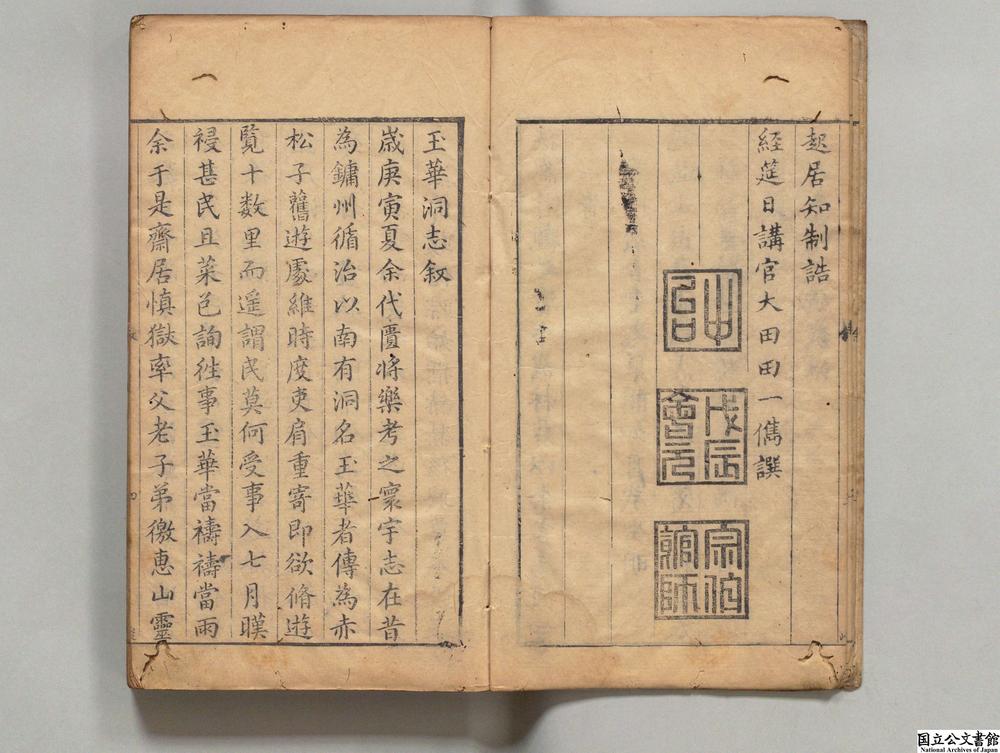 起居知制誥
經筵日講官大田田一儁譔
戊辰會元
宗伯館師
玉華洞志叙
歲庚寅夏余代匱將樂考之寰宇志在昔
為鏞州循治以南有洞名玉華者傳為赤
松子舊遊處維時度吏肩重寄即欲脩遊
覽十數里而遥謂民莫何受事入七月暵
祲甚民且菜色詢徃事玉華當禱禱當雨
余于是齋居慎獄率父老子弟徼惠山靈
国立公文書館
National Archives of Japan